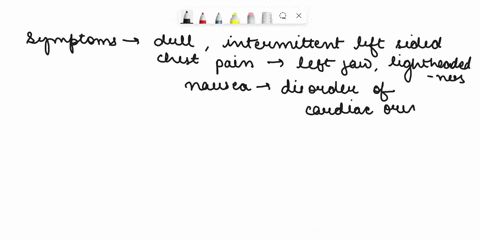 symptoms → dull, intermittent left sided
chest pain → left jaw, lightheaded
-ness
nausea → disorder of
cardiac ori